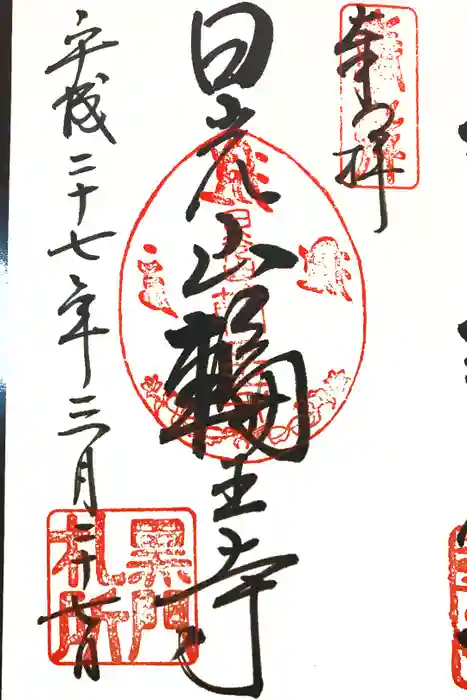 奉拝
日光山輪王寺
平成二十七年三月二十七日
黒門
札所